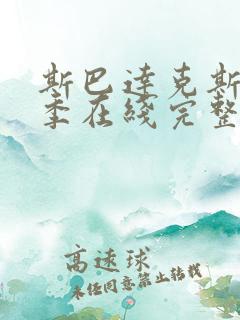 斯巴达克斯
季在线完整
高速球
未经同意禁止转载